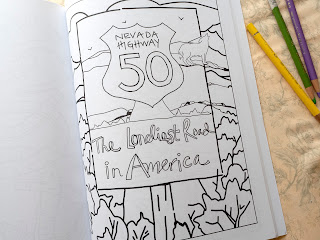 NEVADA
HIGHWAY
50
The Loneliest Road
in America